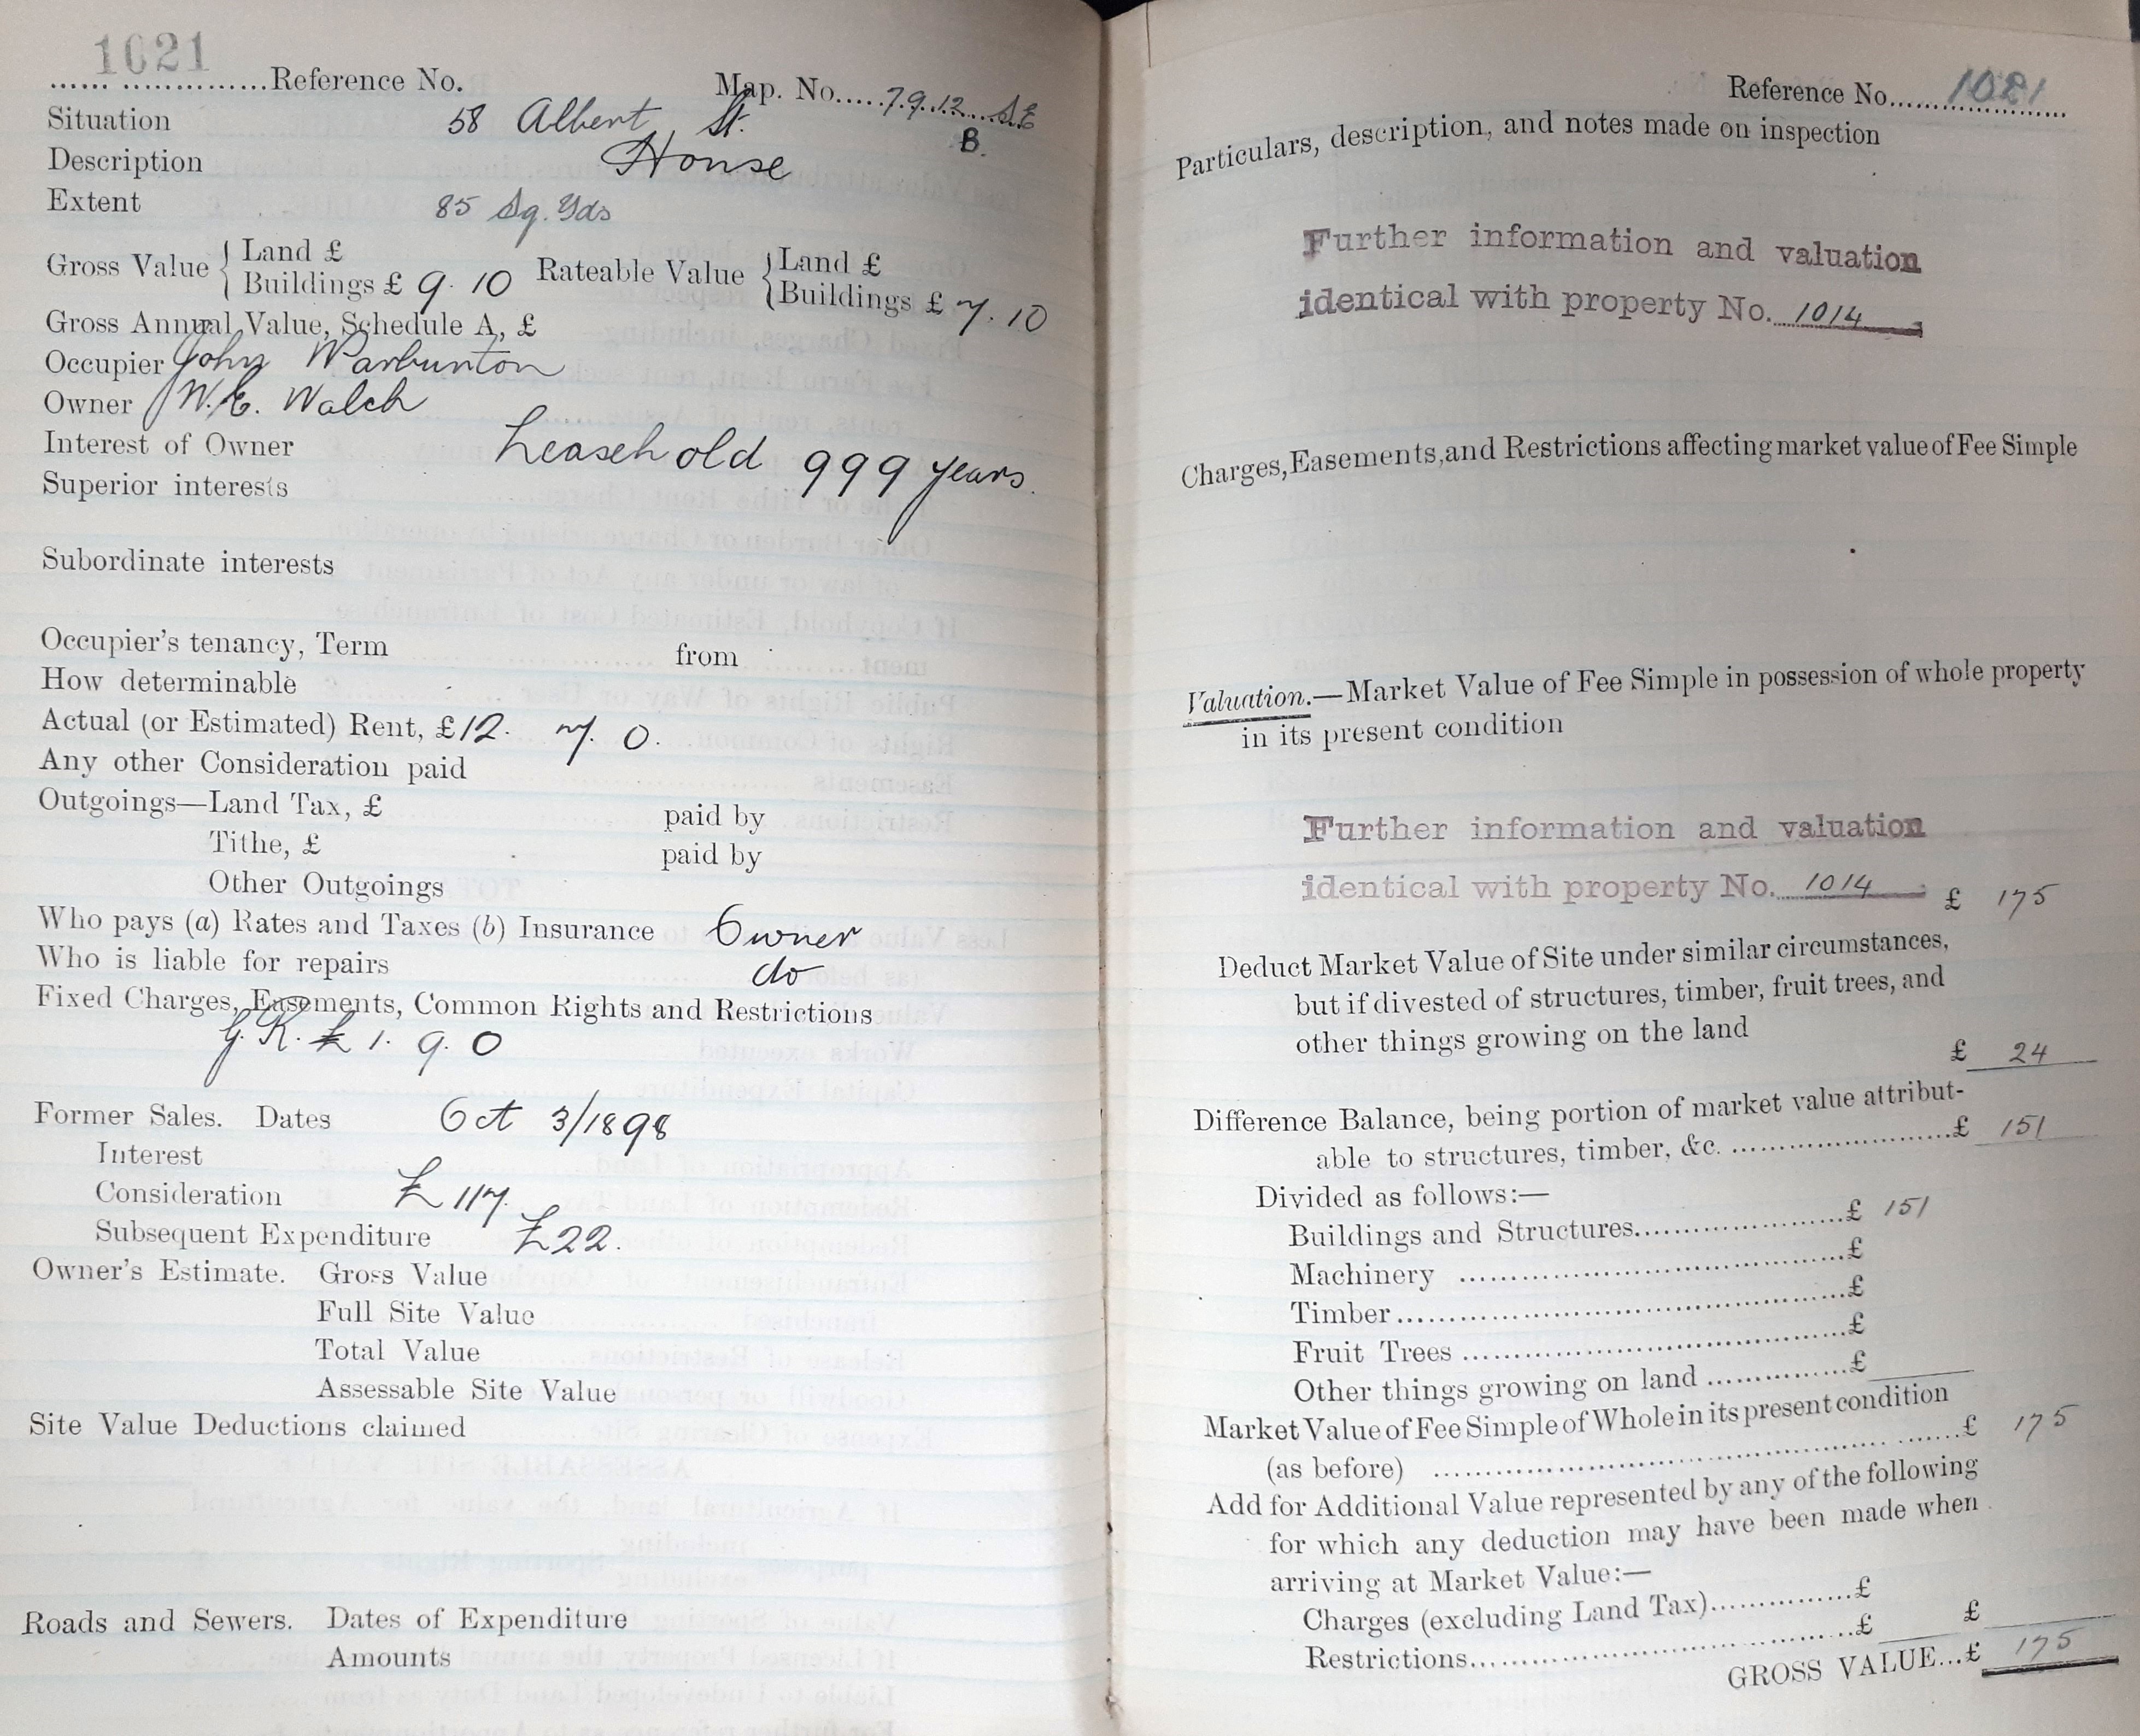 1021
...... ...............Reference No. Map. No.....79.12...SE
B.
Situation 58 Albert St.
Description House
Extent 85 Sq. Yds
Gross Value { Land £
Buildings £ 9. 10
Rateable Value { Land £
Buildings £ 7. 10
Gross Annual Value, Schedule A, £
Occupier John Warburton
Owner W. E. Walch
Interest of Owner Leasehold 999 years.
Superior interests
Subordinate interests
Occupier's tenancy, Term from
How determinable
Actual (or Estimated) Rent, £12. 7. 0.
Any other Consideration paid
Outgoings—Land Tax, £ paid by
Tithe, £ paid by
Other Outgoings
Who pays (a) Rates and Taxes (b) Insurance Owner
Who is liable for repairs do
Fixed Charges, Easements, Common Rights and Restrictions
G. R. £ 1. 9. 0
Former Sales. Dates Oct 3/1898
Interest
Consideration £117.
Subsequent Expenditure £22.
Owner's Estimate. Gross Value
Full Site Value
Total Value
Assessable Site Value
Site Value Deductions claimed
Roads and Sewers. Dates of Expenditure
Amounts
Reference No. 1021
Particulars, description, and notes made on inspection
Further information and valuation
identical with property No. 1014
Charges, Easements, and Restrictions affecting market value of Fee Simple
Valuation.—Market Value of Fee Simple in possession of whole property
in its present condition
Further information and valuation
identical with property No. 1014 £ 175
Deduct Market Value of Site under similar circumstances,
but if divested of structures, timber, fruit trees, and
other things growing on the land
£ 24
Difference Balance, being portion of market value attribut-
able to structures, timber, &c. ........................£ 151
Divided as follows:—
Buildings and Structures........................£ 151
Machinery ........................£
Timber........................£
Fruit Trees ........................£
Other things growing on land ...............£
Market Value of Fee Simple of Whole in its present condition
(as before) ........................£ 175
Add for Additional Value represented by any of the following
for which any deduction may have been made when
arriving at Market Value:—
Charges (excluding Land Tax)...............£
Restrictions........................£ £
GROSS VALUE...£ 175